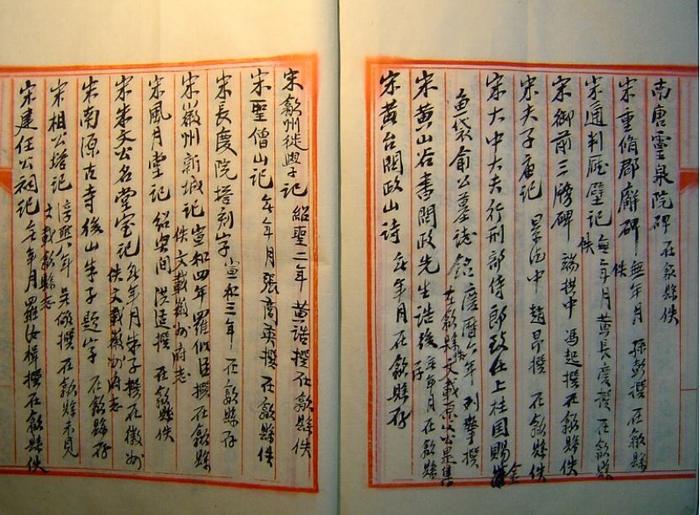 南唐靈泉院碑 在歙縣佚
宋重脩郡廨碑 無年月 孫彭撰 在歙縣佚
宋通判廳壁記 無年月 黃長慶撰 在歙縣佚
宋御前三牓碑 端拱中 馮起撰 在歙縣佚
宋夫子廟記 景德中 趙昂撰 在歙縣佚
宋大中大夫行刑部侍郎致仕上柱国賜金
魚袋俞公墓誌銘 慶曆六年 撰 在歙縣佚文載
宋黃山谷書問政先生誥後 無年月 在歙縣存
宋黃台問政山詩 無年月 在歙縣存
宋歙州徙學記 紹聖二年 黃誥撰 在歙縣佚
宋聖僧山記 無年月 張商英撰 在歙縣佚
宋長慶院塔刻字 宣和三年 在歙縣存
宋徽州新城記 宣和四年 羅似臣撰 在歙縣佚文載徽州府志
宋風月堂記 紹興間 洪适撰 在歙縣佚
宋朱文公名堂室記 無年月 朱子撰 在徽州佚文載徽州府志
宋南源古寺後山朱子題字 在歙縣存
宋相公塔記 淳熙八年 吳儆撰 在歙縣未見文載歙縣志
宋建任公祠記 無年月 羅汝楫撰 在歙縣佚